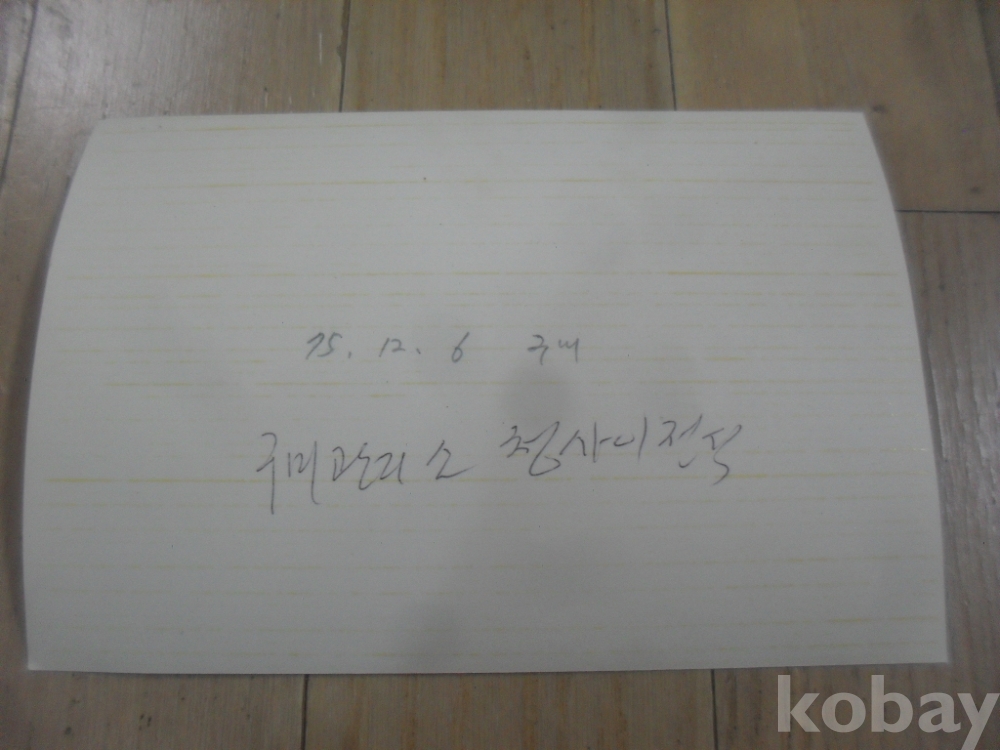 75. 12. 6 구미
구미관리소 청사이전식
kobay